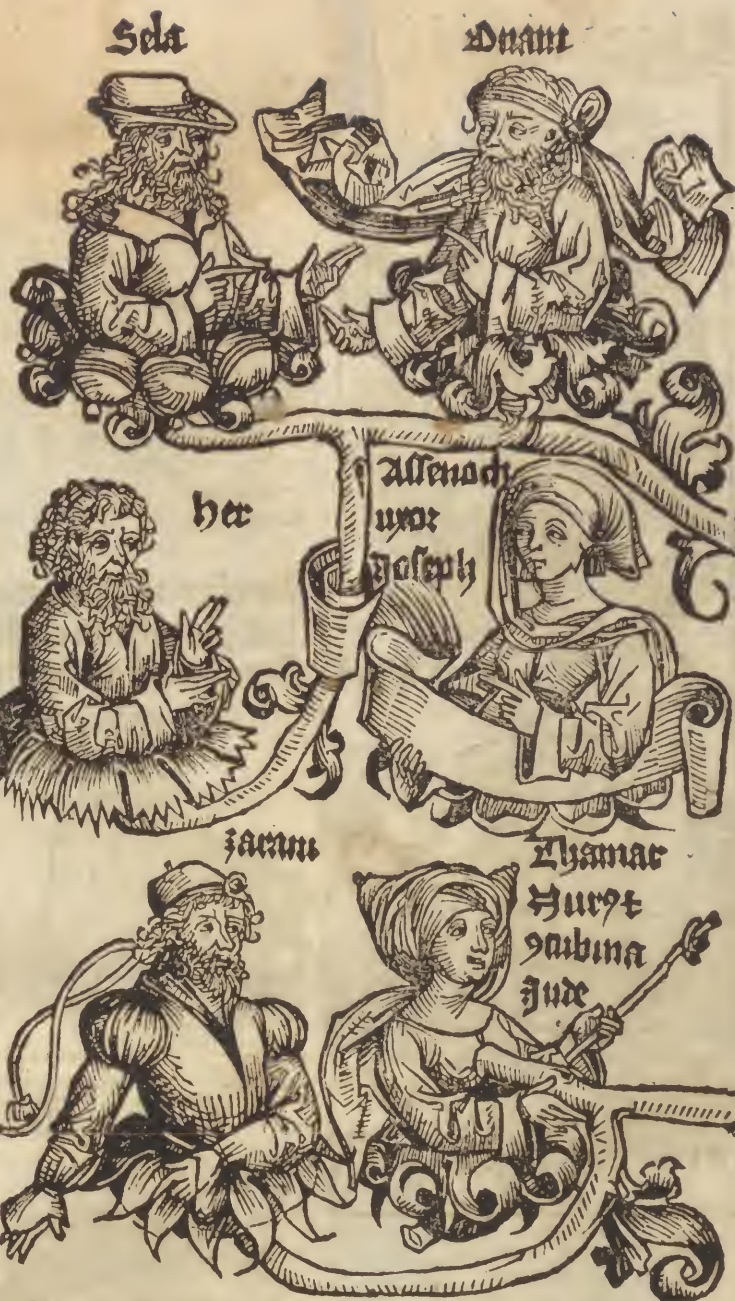 Sela
Onam
Her
Assenoch
uxor
Joseph
zaram
Thamar
Nurꝰ ⁊
ꝯcubina
Jude